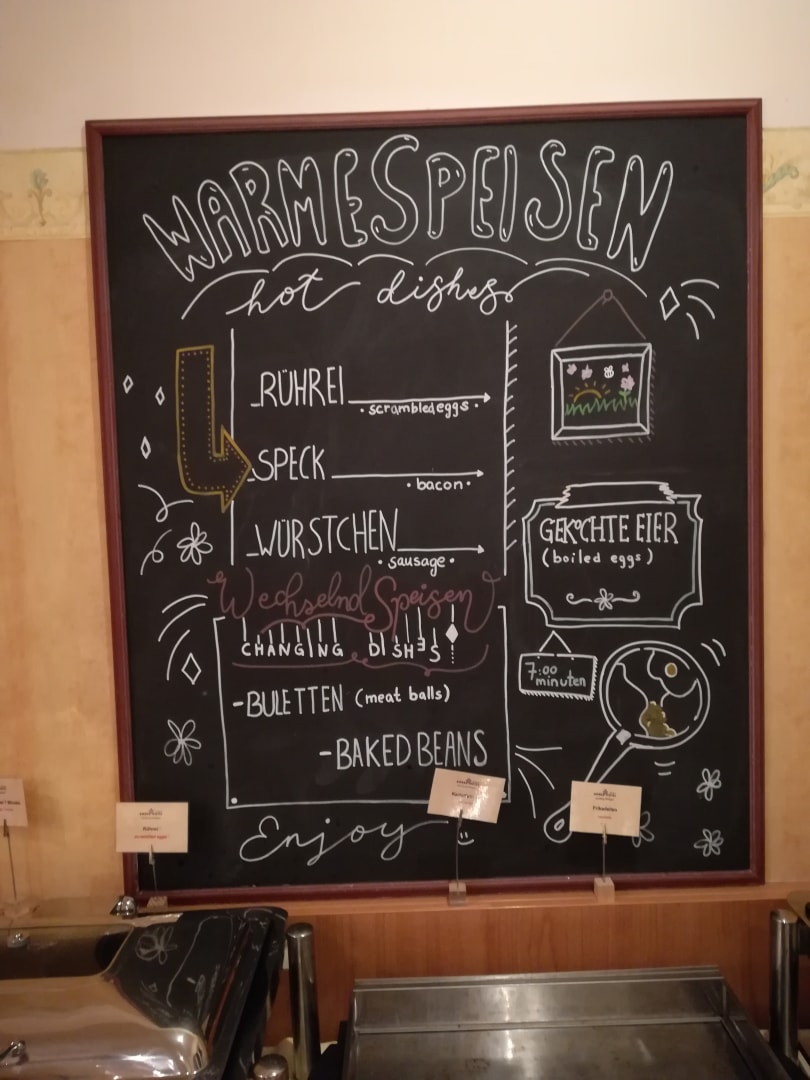 WARMESPEISEN
hot dishes
RÜHREI
scrambled eggs
SPECK
bacon
WÜRSTCHEN
sausage
Wechselnd Speisen
CHANGING DISHES
-BULETTEN (meat balls)
-BAKED BEANS
Enjoy
GEKOCHTE EIER
(boiled eggs)
7:00
minuten
Rührei
Frikadellen